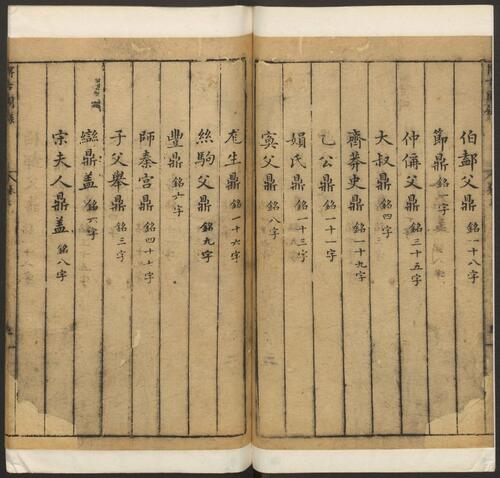 伯䣄父鼎銘一十八字
節鼎銘一字
仲偁父鼎銘三十五字
大叔鼎銘四字
齊莽史鼎銘一十九字
乙公鼎銘一十一字
娟氏鼎銘一十三字
寅父鼎銘八字
生鼎銘一十六字
絲駒父鼎銘九字
豐鼎銘六字
師秦宮鼎銘四十七字
子父舉鼎銘三字
䜌鼎蓋銘六字
宗夫人鼎蓋銘八字